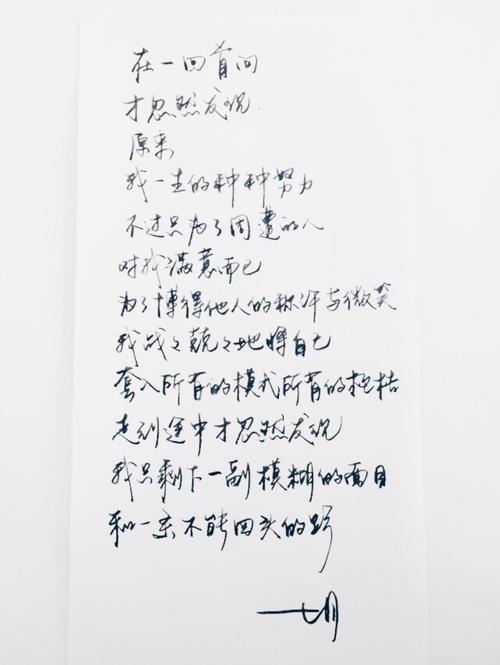 在一回首间
才忽然发现
原来
我一生的种种努力
不过只为了周遭的人
对我满意而已
为了博得他人的称许与微笑
我战々兢々地将自己
套入所有的模式所有的桎梏
走到途中才忽然发现
我只剩下一副模糊的面目
和一条不能回头的路
一七月